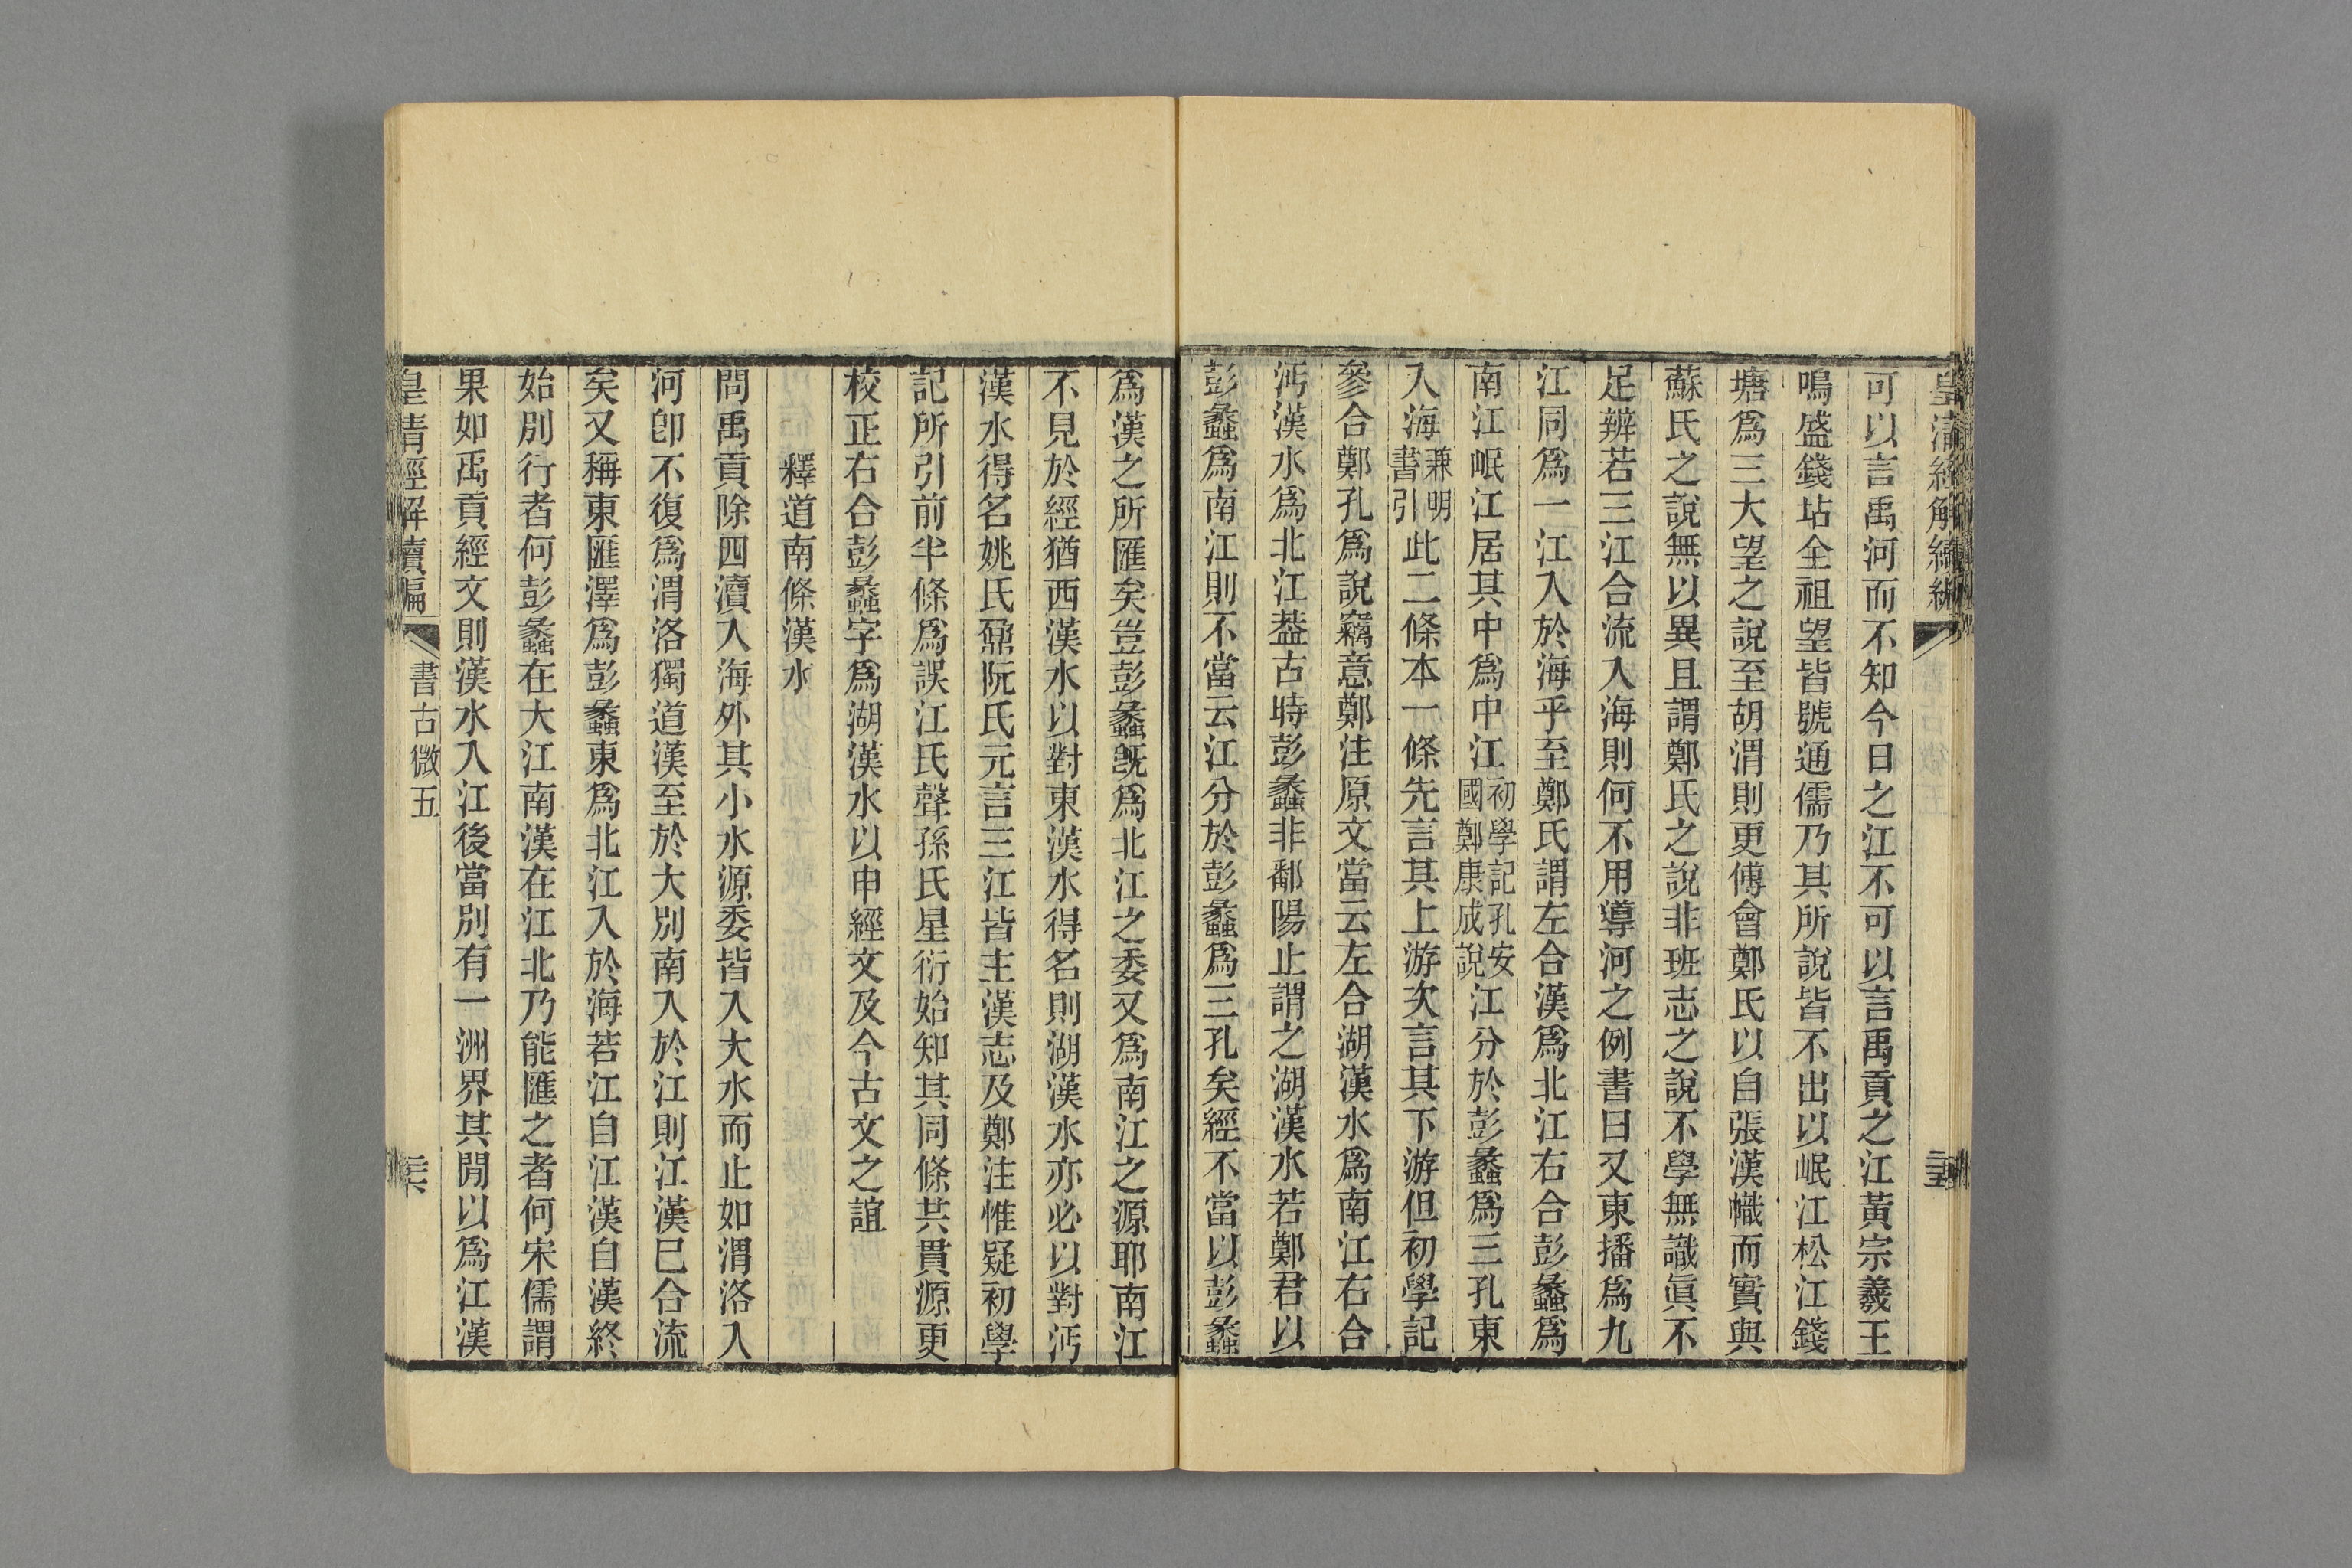 皇清經解續編
可以言禹河而不知今日之江不可以言禹貢之江黃宗羲王
鳴盛錢坫全祖望皆號通儒乃其所說皆不出以岷江松江錢
塘爲三大望之說至胡渭則更傅會鄭氏以自張漢幟而實與
蘇氏之說無以異且謂鄭氏之說非班志之說不學無識眞不
足辨若三江合流入海則何不用導河之例書曰又東播爲九
江同爲一江入於海乎至鄭氏謂左合漢爲北江右合彭蠡爲
南江岷江居其中爲中江初學記孔安國鄭康成說江分於彭蠡爲三孔東
入海兼明書引此二條本一條先言其上游次言其下游但初學記
參合鄭孔爲說竊意鄭注原文當云左合湖漢水爲南江右合
沔漢水爲北江葢古時彭蠡非鄱陽止謂之湖漢水若鄭君以
彭蠡爲南江則不當云江分於彭蠡爲三孔矣經不當以彭蠡
爲漢之所匯矣豈彭蠡旣爲北江之委又爲南江之源耶南江
不見於經猶西漢水以對東漢水得名則湖漢水亦必以對沔
漢水得名姚氏鼐阮氏元言三江皆主漢志及鄭注惟疑初學
記所引前半條爲誤江氏聲孫氏星衍始知其同條共貫源更
校正右合彭蠡字爲湖漢水以申經文及今古文之誼
釋道南條漢水
問禹貢除四瀆入海外其小水源委皆入大水而止如渭洛入
河卽不復爲渭洛獨道漢至於大別南入於江則江漢巳合流
矣又稱東匯澤爲彭蠡東爲北江入於海若江自江漢自漢終
始別行者何彭蠡在大江南漢在江北乃能匯之者何宋儒謂
果如禹貢經文則漢水入江後當別有一洲界其閒以爲江漢
皇清經解續編
書古微五